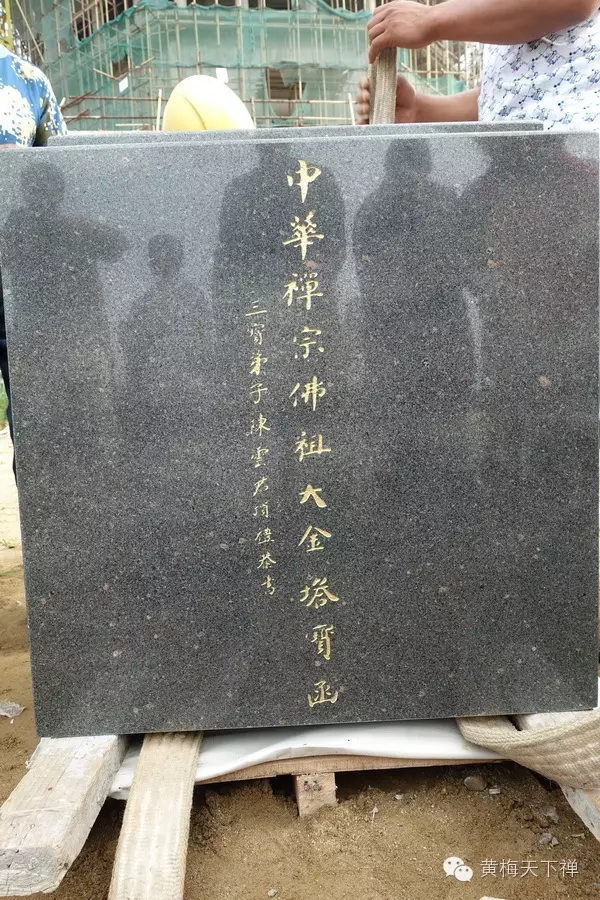 中華禪宗佛祖大金塔寶函
三寶弟子陳雲君頂禮恭書
黄梅天下禅